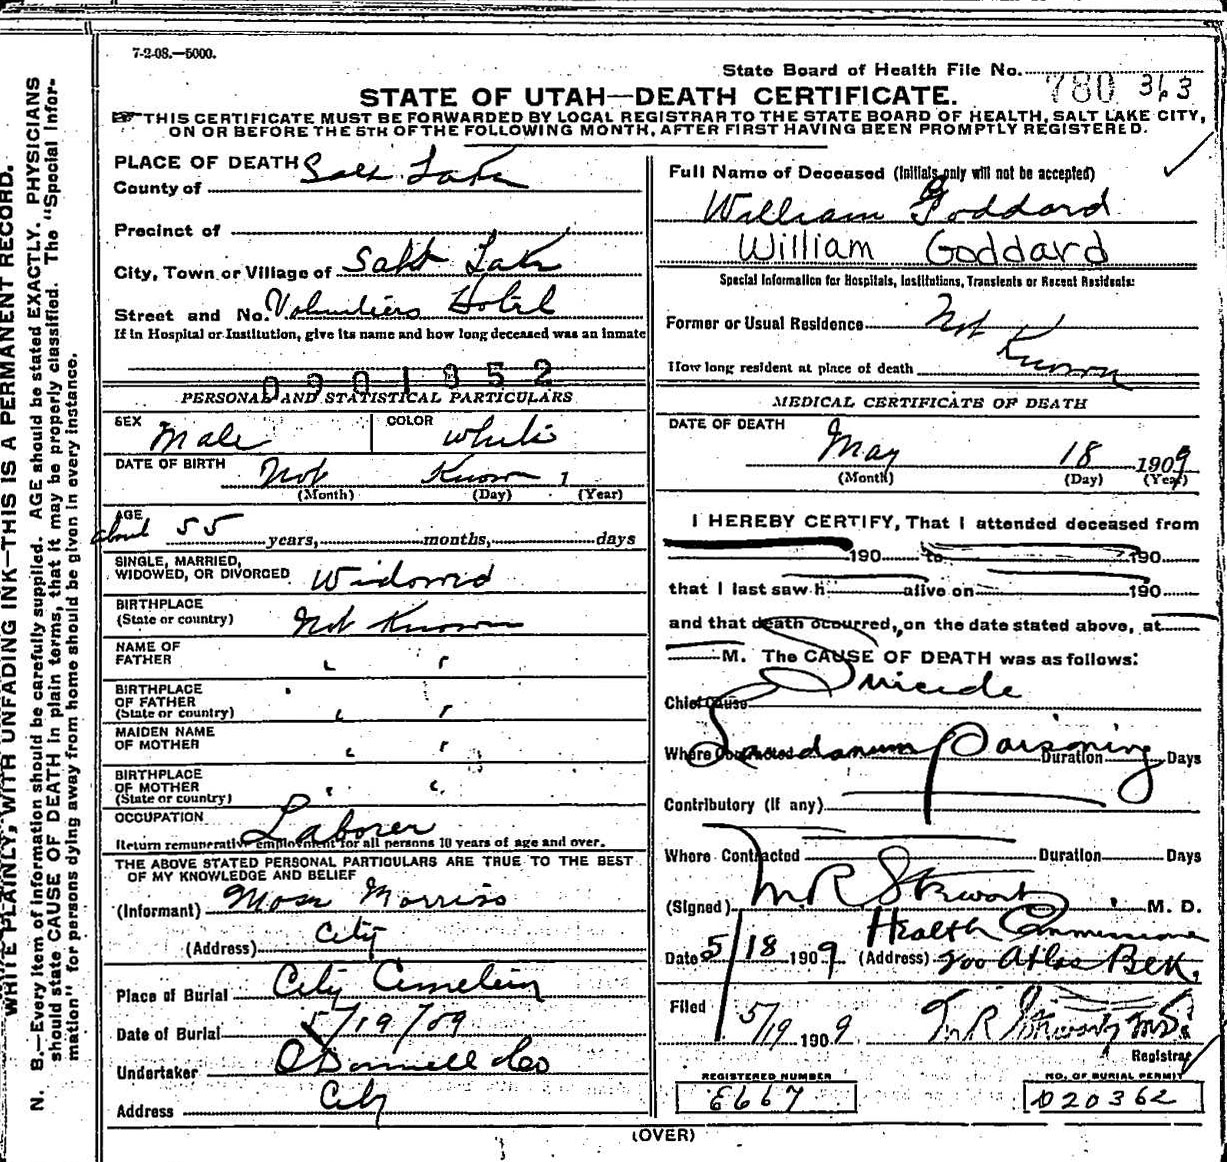 7-2-08.—5000.
State Board of Health File No. 780 363
STATE OF UTAH—DEATH CERTIFICATE.
THIS CERTIFICATE MUST BE FORWARDED BY LOCAL REGISTRAR TO THE STATE BOARD OF HEALTH, SALT LAKE CITY,
ON OR BEFORE THE 5TH OF THE FOLLOWING MONTH, AFTER FIRST HAVING BEEN PROMPTLY REGISTERED.
WRITE PLAINLY, WITH UNFADING INK—THIS IS A PERMANENT RECORD.
N. B.—Every item of information should be carefully supplied. AGE should be stated EXACTLY. PHYSICIANS
should state CAUSE OF DEATH in plain terms, that it may be properly classified. The "Special Infor-
mation" for persons dying away from home should be given in every instance.
PLACE OF DEATH
County of Salt Lake
Precinct of
City, Town or Village of Salt Lake
Street and No. Volunteers Hotel
If in Hospital or Institution, give its name and how long deceased was an inmate
0901852
PERSONAL AND STATISTICAL PARTICULARS
SEX Male COLOR White
DATE OF BIRTH Not Known 1
(Month) (Day) (Year)
AGE
about 55 years, months, days
SINGLE, MARRIED,
WIDOWED, OR DIVORCED Widowed
BIRTHPLACE
(State or country) Not Known
NAME OF
FATHER " "
BIRTHPLACE
OF FATHER
(State or country) " "
MAIDEN NAME
OF MOTHER " "
BIRTHPLACE
OF MOTHER
(State or country) " "
OCCUPATION Laborer
Return remunerative employment for all persons 10 years of age and over.
THE ABOVE STATED PERSONAL PARTICULARS ARE TRUE TO THE BEST
OF MY KNOWLEDGE AND BELIEF
(Informant) Morriss
(Address) City
Place of Burial City Cemetery
Date of Burial 5/19/09
Undertaker O'Donnell & Co
Address City
Full Name of Deceased (Initials only will not be accepted)
William Goddard
William Goddard
Special Information for Hospitals, Institutions, Transients or Recent Residents:
Former or Usual Residence Not Known
How long resident at place of death
MEDICAL CERTIFICATE OF DEATH
DATE OF DEATH
May 18 1909
(Month) (Day) (Year)
I HEREBY CERTIFY, That I attended deceased from
190 to 190
that I last saw h alive on 190
and that death occurred, on the date stated above, at
M. The CAUSE OF DEATH was as follows:
Chief Cause Suicide
Where Contracted Laudanum Poisoning Duration Days
Contributory (if any)
Where Contracted Duration Days
(Signed) M. R. Stewart M. D.
Health Commissioner
Date 5/18 1909 (Address) 200 Atlas Blk.
Filed 5/19 1909 M. R. Stewart MD
Registrar
REGISTERED NUMBER
E667
NO. OF BURIAL PERMIT
D20362
(OVER)